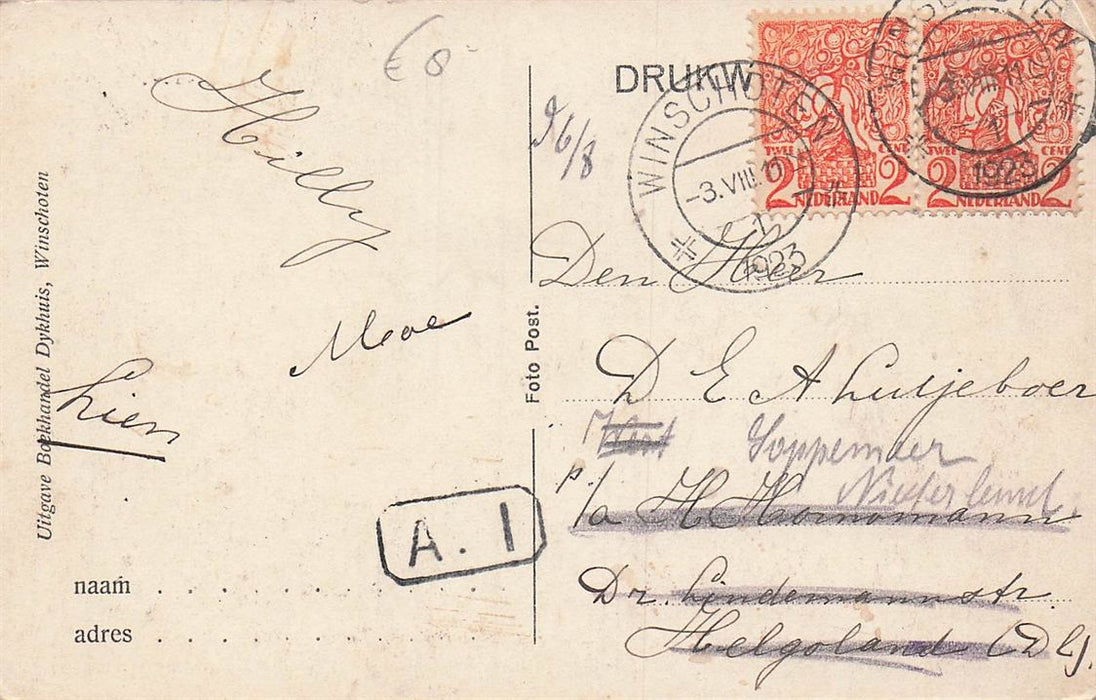 € 8-
Hilly
Moe
Lien
Uitgave Boekhandel Dykhuis, Winschoten
naam
adres
A. I
Foto Post.
DRUKW
26/8
WINSCHOTEN
-3.VIII.11
1
1923
1923
TWEE CENT
2 NEDERLAND 2
TWEE CENT
2 NEDERLAND 2
Den Heer
D E A Lutjeboer
Soppemeer
Niederland.
p/a H Hornomann
Dr. Lindemannstr.
Helgoland (Dl).